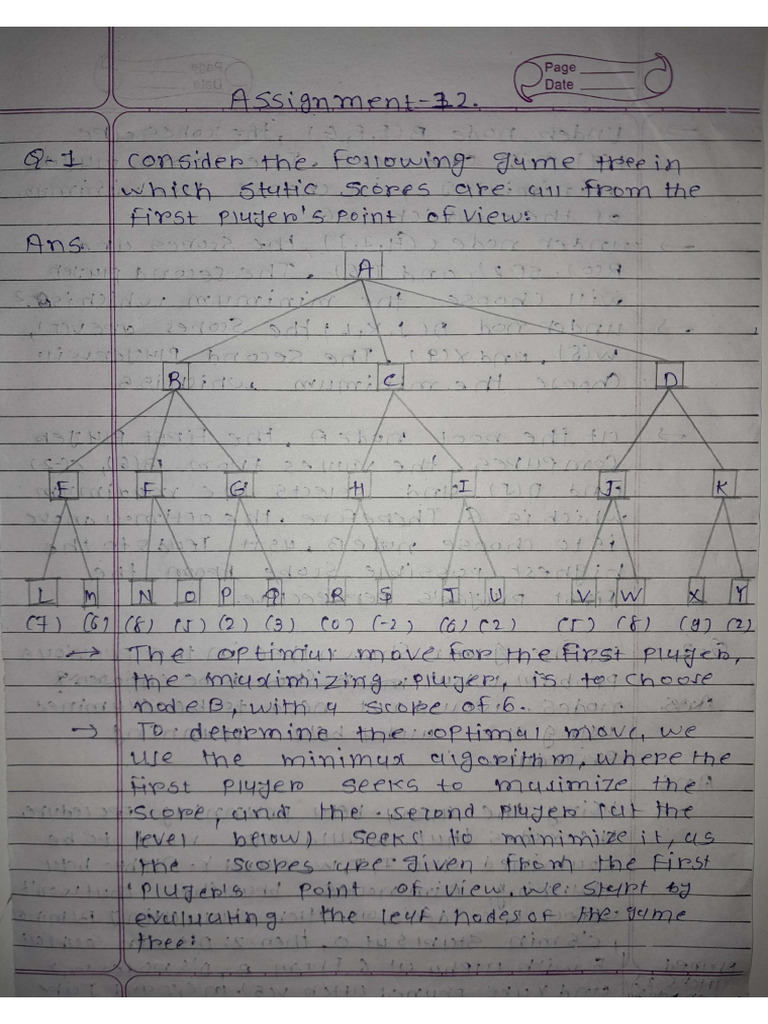 Page
Date
Assignment-12.
Q-1 Consider the following game tree in
which static scores are all from the
first player's point of view:
Ans.
A
B C D
E F G H I J K
L M N O P Q R S T U V W X Y
(7) (6) (8) (5) (2) (3) (0) (-2) (6) (2) (5) (8) (9) (2)
→ The optimal move for the first player,
the maximizing player, is to choose
node B, with a score of 6.
→ To determine the optimal move, we
use the minimax algorithm, where the
first player seeks to maximize the
score, and the second player (at the
level below) seeks to minimize it, as
the scopes are given from the first
player's point of view. we start by
evaluating the leaf nodes of the game
tree: